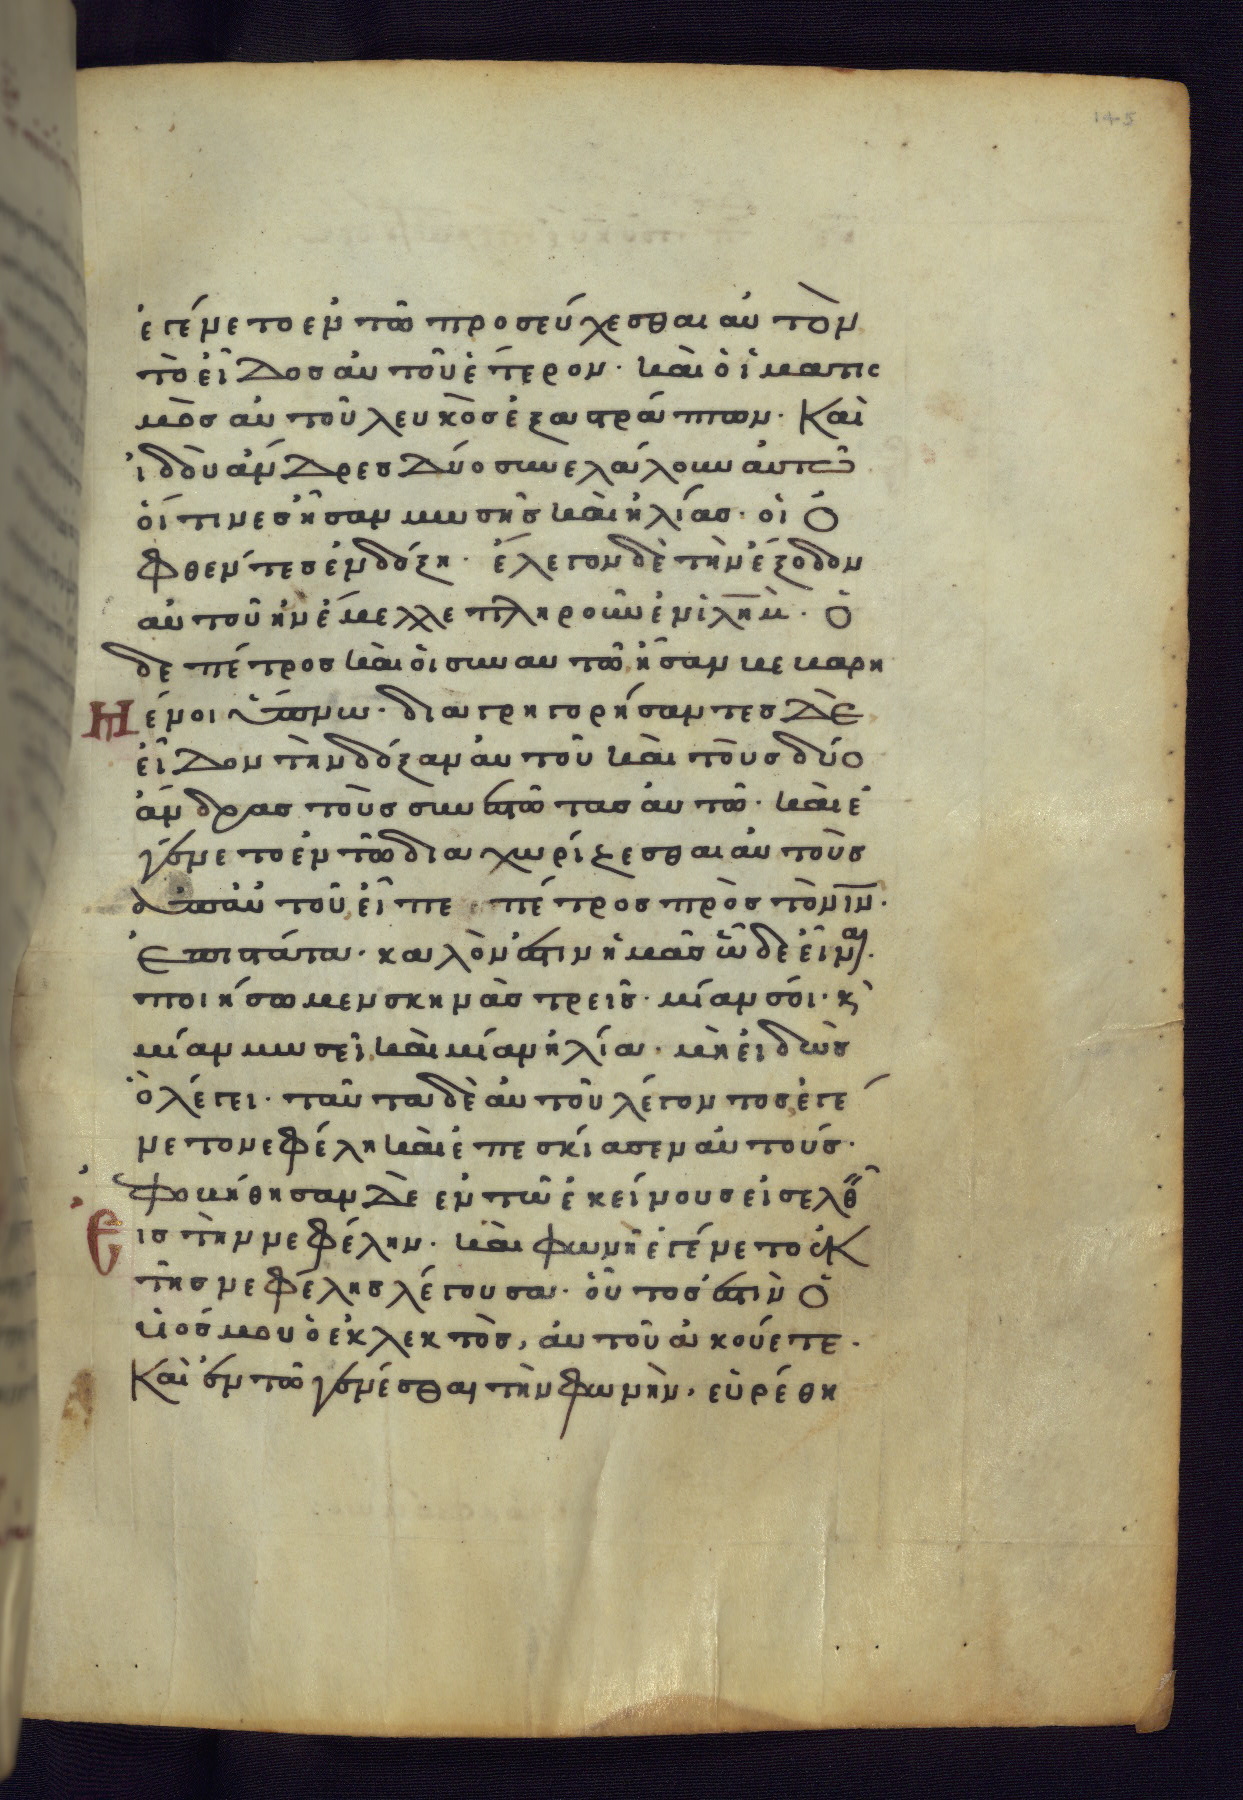 145
ἐγένετο ἐν τῶ προσεύχεσθαι αὐτὸν
τὸ εἶδος αὐτοῦ ἕτερον· καὶ ὁ ἱματισ
μὸς αὐτοῦ λευκὸς ἐξαστράπτων· Καὶ
ἰδοὺ ἄνδρες δύο συνελάλουν αὐτῶ
οἵτινες ἦσαν μωσῆς καὶ ἠλίας· οἱ ὀ
φθέντες ἐν δόξη· ἔλεγον δὲ τὴν ἔξοδον
αὐτοῦ ἣν ἔμελλε πληροῦν ἐν ἰλημ· Ὁ
δε πέτρος καὶ οἱ συν αυτῶ ἦσαν κεκαρη
Η
μένοι ὕπνω· διαγρηγορήσαντες δὲ
εἶδον τὴν δόξαν αὐτοῦ καὶ τοὺς δύο
ἄνδρας τοὺς συνεστῶτας αὐτῶ· καὶ ἐ
γένετο ἐν τῶ διαχωρίζεσθαι αὐτοὺς
ἀπ αὐτοῦ, εἶπε πέτρος πρὸς τὸν ιν·
Ἐπιστάτα· καλὸν ἐστιν ἡμᾶς ὧδε εἶναι·
ποιήσωμεν σκηνὰς τρεῖς· μίαν σοί· κ
μίαν μωσεῖ, καὶ μίαν ἠλία· μὴ εἰδὼς
ὃ λέγει· ταῦτα δὲ αὐτοῦ λέγοντος ἐγέ
νετο νεφέλη καὶ ἐπεσκίασεν αὐτούς·
ἐφοβήθησαν δὲ εν τῶ ἐκείνους εἰσελθ
Ε
ις τὴν νεφέλην· καὶ φωνὴ ἐγένετο ἐκ
τῆς νεφέλης λέγουσα· οὗτος ἐστιν ὁ
υἱός μου ὁ εκλεκτὸς, αὐτοῦ ἀκούετε·
Καὶ ἐν τῶ γενέσθαι τὴν φωνὴν, εὑρέθη